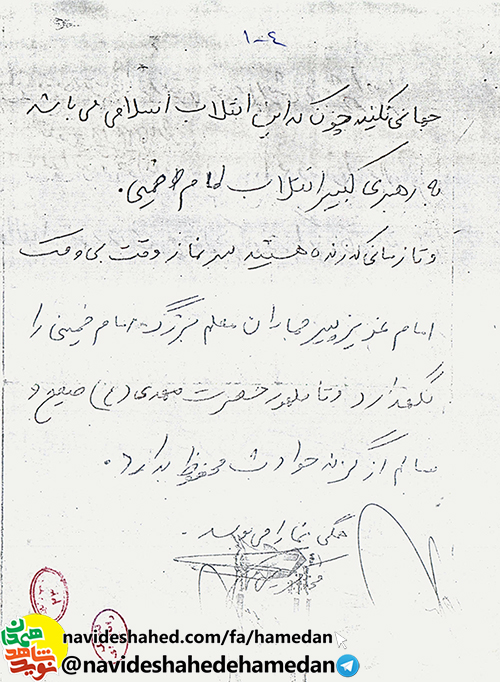 ۱-۴
جهانی نکنید چون که این انقلاب اسلامی می باشد
به رهبری کبیر انقلاب امام خمینی.
و تا زمانی که زنده هستید سر نماز وقت بی وقت
امام عزیز پیر جماران معلم بزرگ امام خمینی را
نگهدارد و تا ظهور حضرت مهدی (ع) صحیح و
سالم از گزند حوادث محفوظ بدارد.
همگی شما را می بوسد.
نوید شاهد همدان
navideshahed.com/fa/hamedan
@navideshahedehamedan